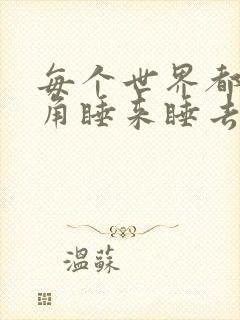 每个世界都
角睡来睡去
温蘇